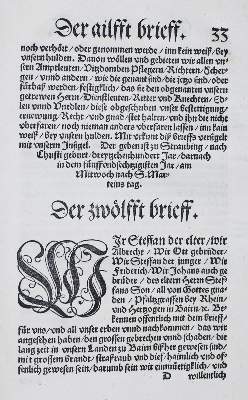 Der ailfft brieff. 33
noch verhört / oder genommen werde / inn kein weiß / bey
vnsern hulden. Dauon wöllen vnd gebieten wir allen vn=
sern Amptleuten / Vitzdomben Pflegern / Richtern / Scher=
gen / vnnd andern / wie die genant sind / die jezo sind / oder
fürbaß werden / festigklich / das sie den obgenanten vnsern
getrewen Herrn / Dienstleuten / Ritter vnd Knechten / Ed=
len vnnd Vnedlen / diese obgeschriben vnser bestettigung /
ernewung / Recht / vnd gnad / stet halten / vnd jhn die nicht
vberfaren / noch nieman anders vberfaren lassen / inn kain
weiß / bey vnsern hulden. Mit vrkunt diß brieffs versigelt
mit vnserm Insigel. Der geben ist zu Straubing / nach
Christi geburt / dreyzehenhundert Jar / darnach
in dem fünffvndsechtzigisten Jar / am
Mitwoch nach S. Mar=
teins tag.
Der zwölfft brieff.
WIr Steffan der elter / wir
Albrecht / Wir Ott gebrüder /
Wir Steffan der jünger / Wir
Friderich / Wir Johans auch ge
brüder / des eltern Herrn Stef=
fans Sön / all von Gottes gena=
den / Pfaltzgrafen bey Rhein /
vnd Hertzogen in Bairn / ꝛc. Be
kennen offentlich mit dem brieff /
für vns / vnd all vnser erben vnnd nachkommen / das wir
angesehen haben / den grossen gebrechen vnnd schaden / die
lang zeit in vnsern Landen zu Baiern bißher gewesen sind /
mit grossem brandt / straßraub vnd dieb / haimlich vnd of=
fenlich gewesen sein / darumb sein wir ainmütigklich / vnd
D willenklich